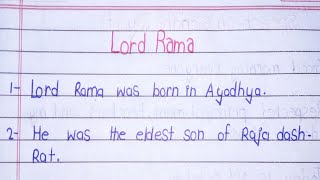 Lord Rama
1- Lord Rama was born in Ayodhya.
2- He was the eldest son of Raja dash-
Rat.